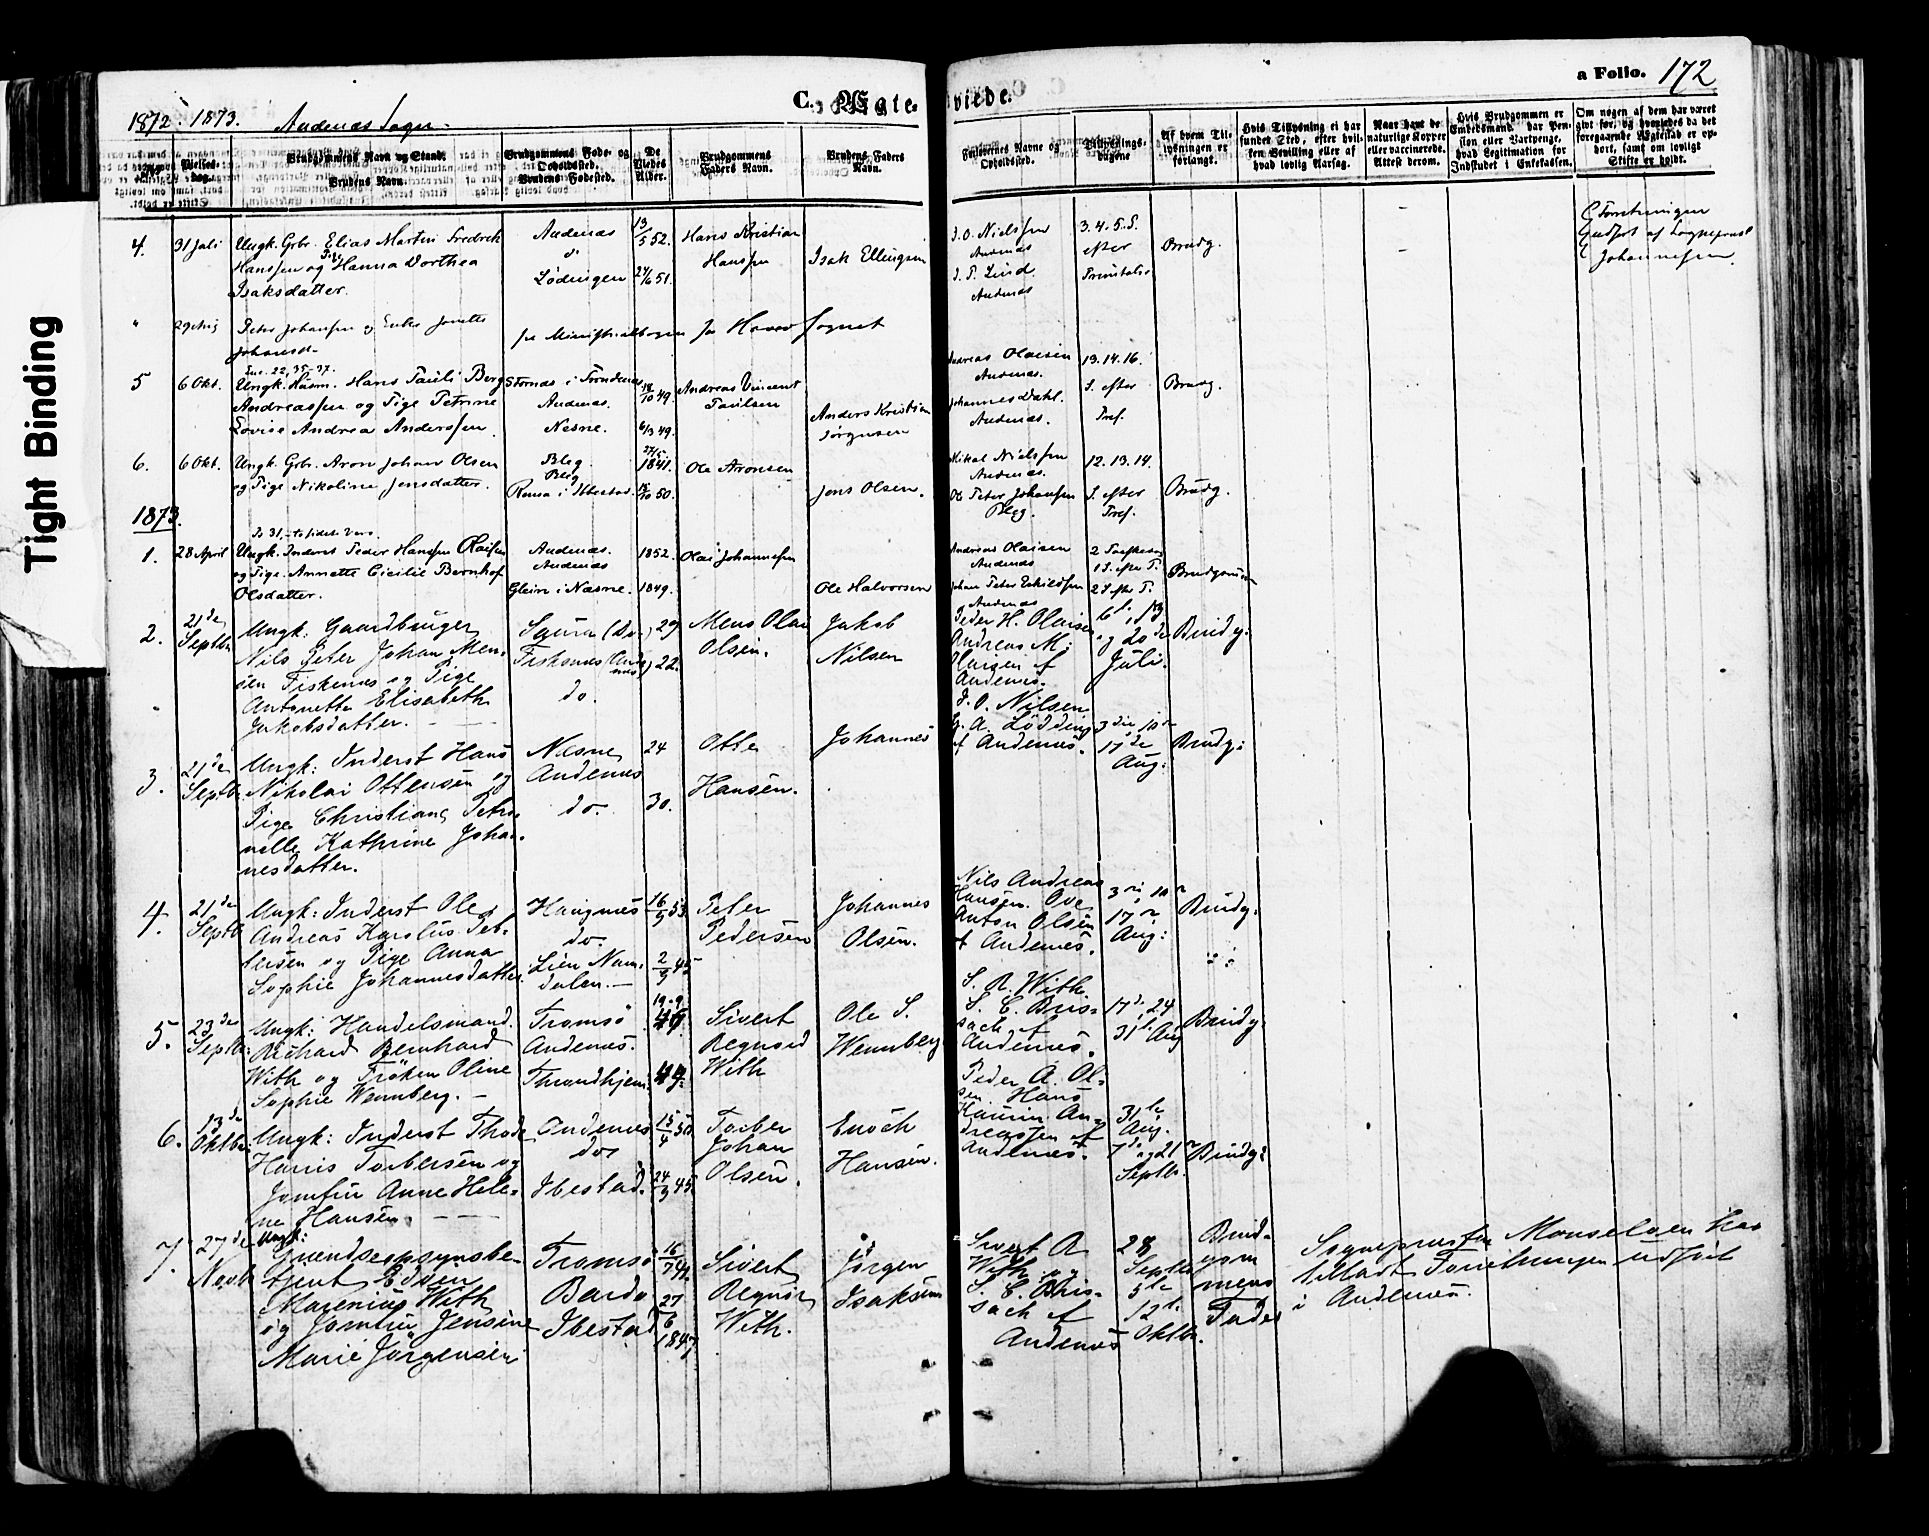 Tight Binding
C. Ægteviede.
a Folio. 172
1872. 1873. Andenæs Sogn.
Brudgommens Navn og Stand.
Brudens Navn.
Brudgommens Føde- og
Opholdssted.
Brudens Fødested.
De
Viedes
Alder.
Brudgommens
Faders Navn.
Brudens Faders
Navn.
Forlovernes Navne og
Opholdssted.
Tillysnings-
dagene
Af hvem Til-
lysningen er
forlangt.
Hvis Tillysning ei har
fundet Sted, efter hvil-
ken Bevilling eller af
hvad lovlig Aarsag.
Naar havt de
naturlige Kopper
eller vaccinerede.
Attest derom.
Hvis Brudgommen er
Embedsmand, har Pen-
sion eller Vartpenge,
hvad Legitimation for
Indskudet i Enkekassen.
Om nogen af dem har været
gift før, og hvorledes da det
foregaaende Ægteskab er op-
hørt, samt om lovligt
Skifte er holdt.
4. 31 Juli
Ungk. Grbr. Elias Martin Fredrek
Hanssen og Pige Hanna Dorthea
Isaksdatter.
Andenæs
Lødingen
13/5 52.
51.
Hans Kristian
Hanssen
Isak Ellingsen
J. O. Nielssen
Andenæs
Andenæs
3. 4. 5. S.
efter
Trinitatis
Brudg.
Forretningen
Udført af Sogneprest
Johannesen.
" 29 Aug
Peter Johansen og Enke
Johansd.
se Ministerialbogen for Hovedsognet
5 6 Okt.
Ungk. Husm. Hans Pauli Berg
Andreassen og Pige Petrine
Lovise Andrea Anderssen.
Andenæs.
Nesne.
49.
6/3 49.
Andreas Vincent
Paulsen
Anders Kristian
Jørgensen
Andreas Olaisen
Andenæs.
Johannes Dahl.
Andenæs.
13. 14. 16.
S. efter
Tref.
Brudg.
6. 6 Okt.
Ungk. Grbr. Aron Johan Olsen
og Pige Nikoline Jensdatter.
Bleg
Bleg
1841.
50.
Ole Aronsen
Jens Olsen.
Mikal Nielssen
Andenæs.
Ole Peter Johansen
Bleg.
12. 13. 14.
S. efter
Tref.
Brudg.
1873.
1. 28 April
Ungk. Inderst Peder Hanssen Olaisen
og Pige. Annette Cicilie Bernhof
Olsdatter.
Andenæs.
Andenæs
Glein i Næsne.
1852.
1849.
Olai Johannessen
Ole Halvorsen
Andreas Olaisen
Andenæs
Johan Peter Eskildsen
Andenæs
1 S. efter P.
2 S. efter P.
2. 21de
Septbr.
Ungk: Gaardbruger
Nils Peter Johan Men-
sen Fiskenæs og Pige
Antonette Elisabeth
Jakobsdatter.
Fiskenæs
do.
29
22.
Mens Olai
Olsen.
Jakob
Nilsen
Peder H. Olaisen
Andreas M.
Olaisen af
Andenæs.
6te, 13
og 20de
Juli.
Brudg:
3. 21de
Septbr.
Ungk: Inderst Hans
Nikolai Ottensen og
Pige Christiane Petro-
nelle Kathrine Johan-
nesdatter.
Nesne
Andenæs
do.
24
30.
Otte
Hansen.
Johannes
J. O. Nilsen
af Andenæs.
3die, 10
17de
Aug:
Brudg:
4. 21de
Septb
Ungk: Inderst Ole
Andreas Karolus Pet-
tersen og Pige Anna
Sophie Johannesdatter
Haugnæs
do.
Lien Nam-
dalen.
16/5 53
2/9 45
Peter
Pedersen
Johannes
Olsen.
Nils Andreas
Hansen. Ove
Anton Olsen
af Andenæs.
3die, 10
17
Aug:
Brudg:
5. 23de
Septbr:
Ungk: Handelsmand.
Richard Bernhard
With og Frøken Oline
Sophie Wennberg.
Tromsø
Andenæs.
Throndhjem.
Sivert
Regnord
With
Ole S.
Wennberg
S. R. With.
S. C. Bris-
sach af
Andenæs.
17de, 24
31te Aug
Brudg:
6. 13de
Oktbr:
Ungk: Inderst Thode
Harris Torbersen og
Jomfru Anne Hele-
ne Hansen.
Andenæs
do
Ibestad.
15/4 50
24/9 45
Torber
Johan
Olsen.
Enoch
Hansen.
Peder A. Ol-
sen. Hans
Hansen An-
dreassen af
Andenæs.
31te
Aug.
7de og 21
Septbr.
Brudg:
7. 27de
Novbr
Ungk:
Edvin
Marenius With
og Jomfru Jensine
Marie Jørgensen
Tromsø
Bardo
Ibestad
16/7 41
27/6
1847
Sivert
Regnor
With.
Jørgen
Isaksen
Sivert R
With og
S. C. Bris-
sach af
Andenæs
28
Septbr
5te
12te
Oktbr.
Brud-
gom
mens
Fader
Sognepresten Maaselven har
tilladt Forretningen udført
i Andenæs.